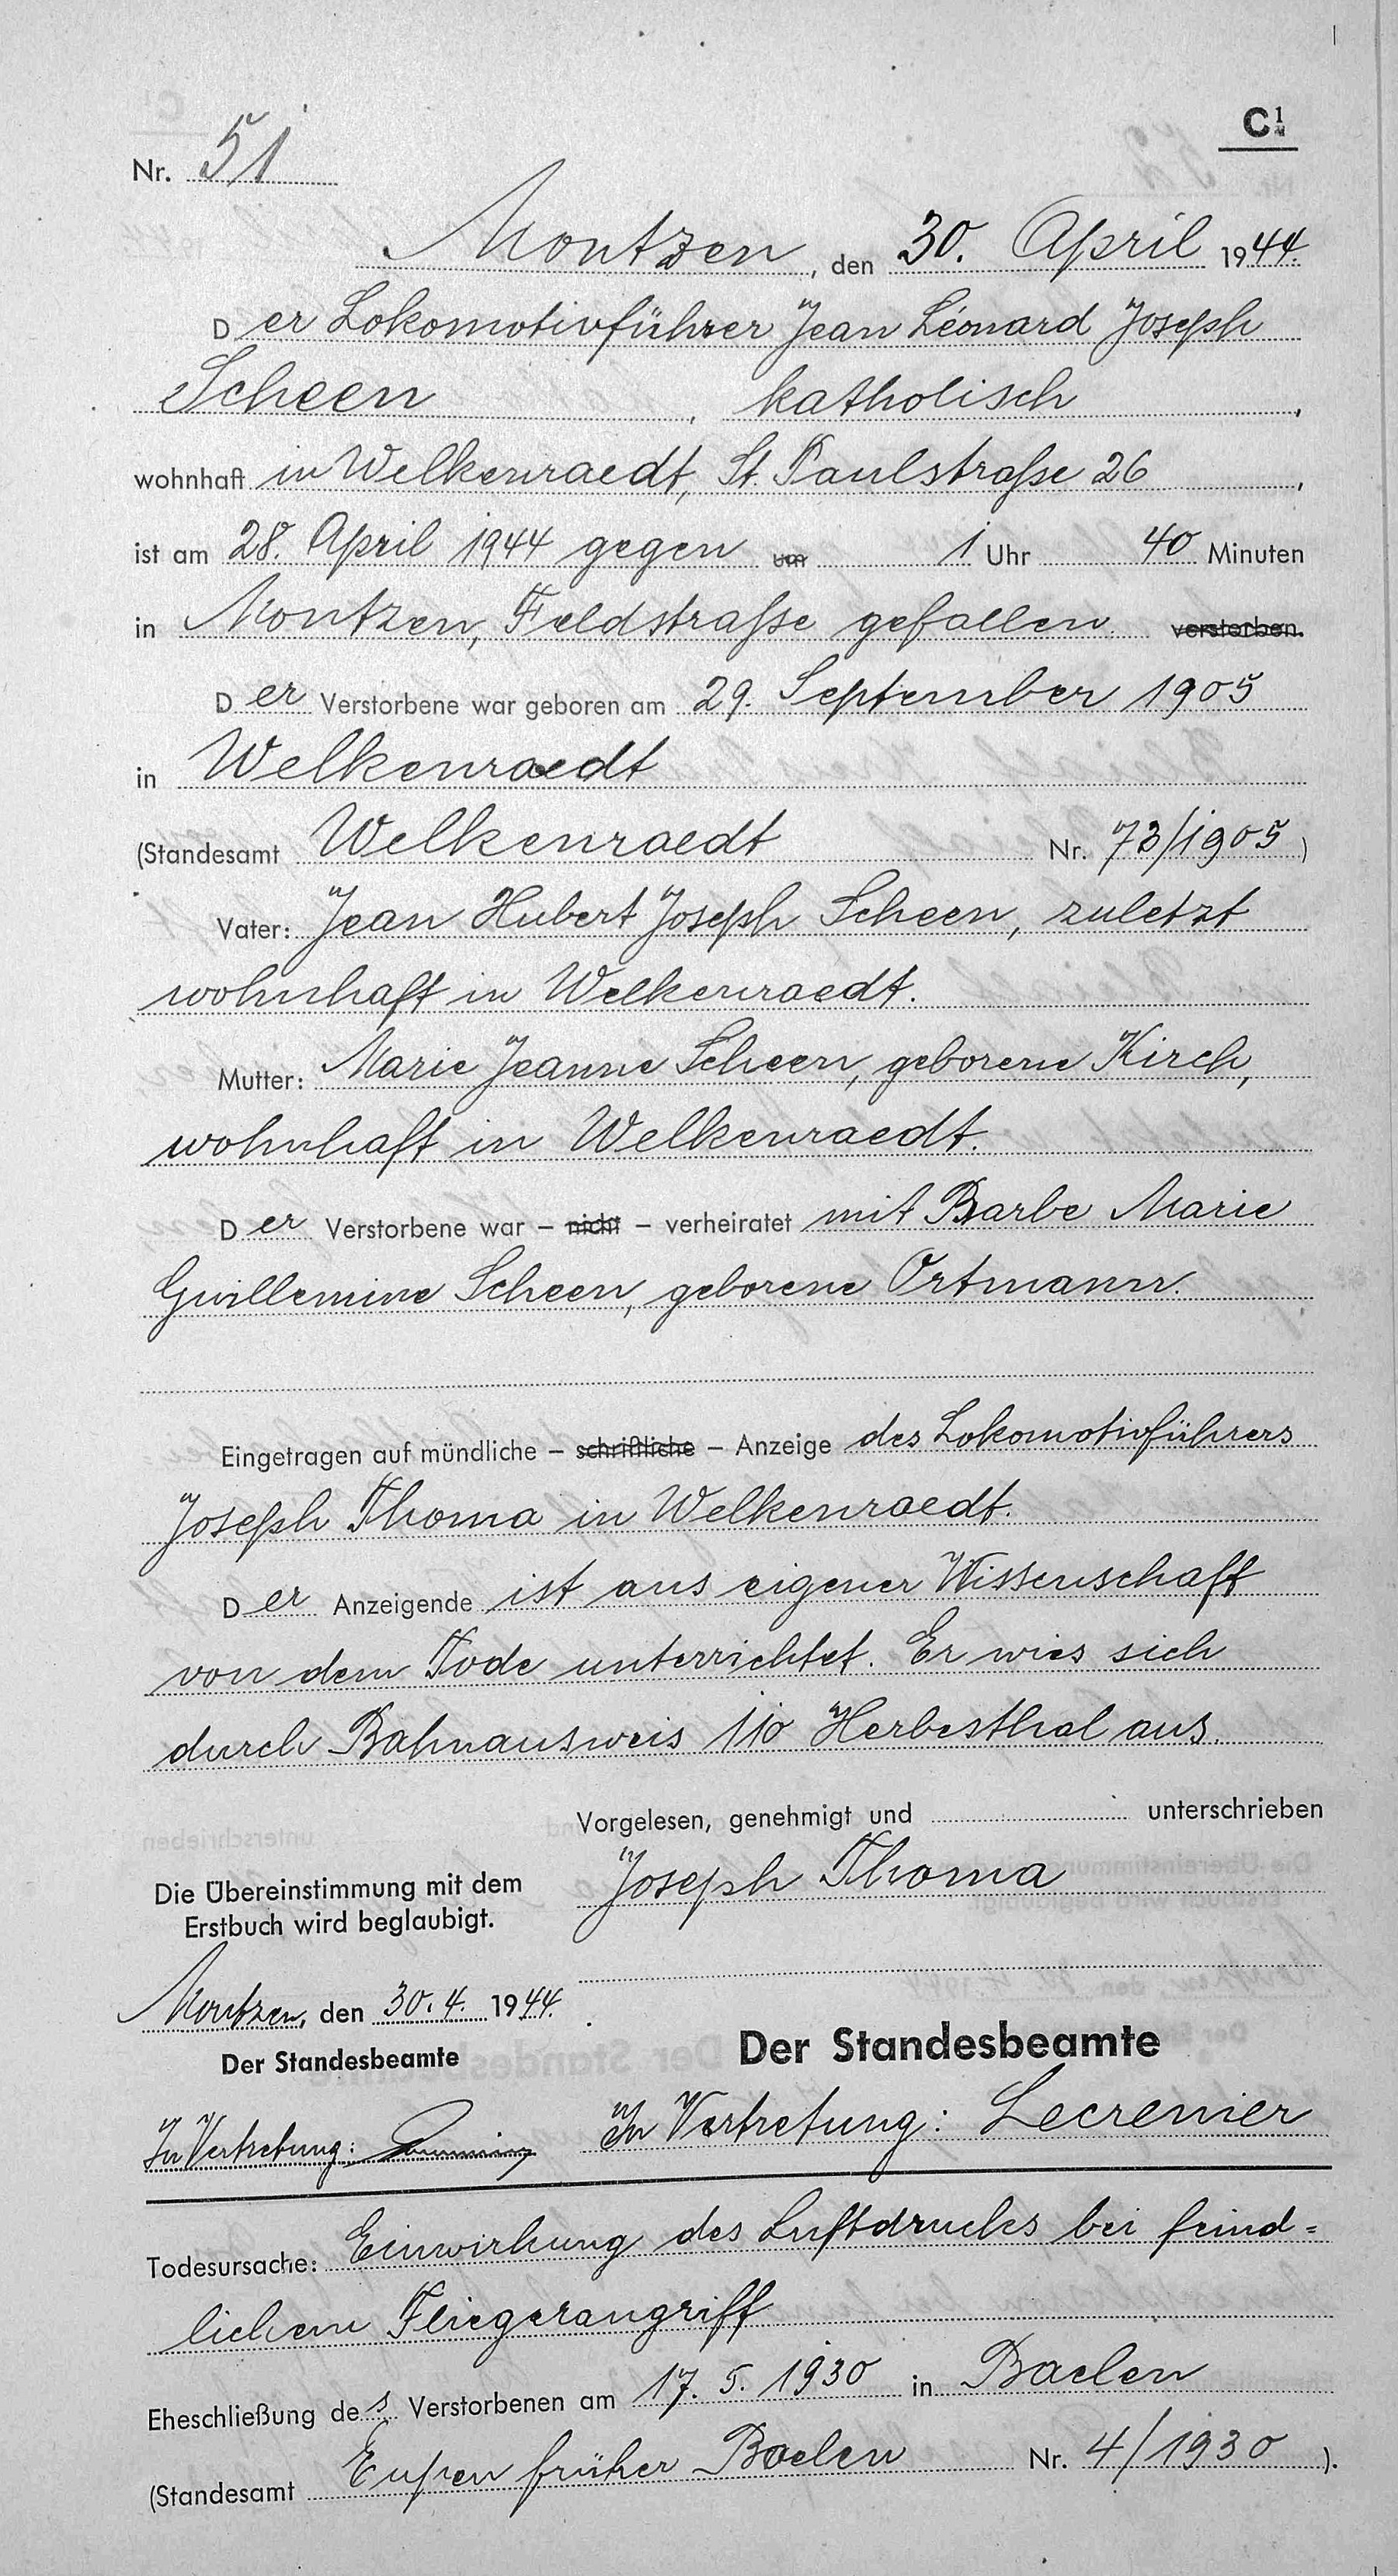 C1
Nr. 51
Montzen, den 30. April 1944.
Der Lokomotivführer Jean Léonard Joseph
Scheen, katholisch,
wohnhaft in Welkenraedt, St. Paulstraße 26,
ist am 28. April 1944 gegen um 1 Uhr 40 Minuten
in Montzen, Feldstraße gefallen. verstorben.
Der Verstorbene war geboren am 29. September 1905
in Welkenraedt
(Standesamt Welkenraedt Nr. 73/1905)
Vater: Jean Hubert Joseph Scheen, zuletzt
wohnhaft in Welkenraedt.
Mutter: Marie Jeanne Scheen, geborene Kirch,
wohnhaft in Welkenraedt.
Der Verstorbene war – nicht – verheiratet mit Barbe Marie
Guillemine Scheen, geborene Ortmann.
Eingetragen auf mündliche – schriftliche – Anzeige des Lokomotivführers
Joseph Thoma in Welkenraedt.
Der Anzeigende ist aus eigener Wissenschaft
von dem Tode unterrichtet. Er wies sich
durch Bahnausweis 110 Herbesthal aus.
Vorgelesen, genehmigt und unterschrieben
Joseph Thoma
Die Übereinstimmung mit dem
Erstbuch wird beglaubigt.
Montzen, den 30.4. 1944.
Der Standesbeamte
In Vertretung:
Der Standesbeamte
In Vertretung: Lecremier
Todesursache: Einwirkung des Luftdrucks bei feind=
lichem Fliegerangriff
Eheschließung des Verstorbenen am 17. 5. 1930 in Baelen
(Standesamt Eupen früher Baelen Nr. 4/1930).